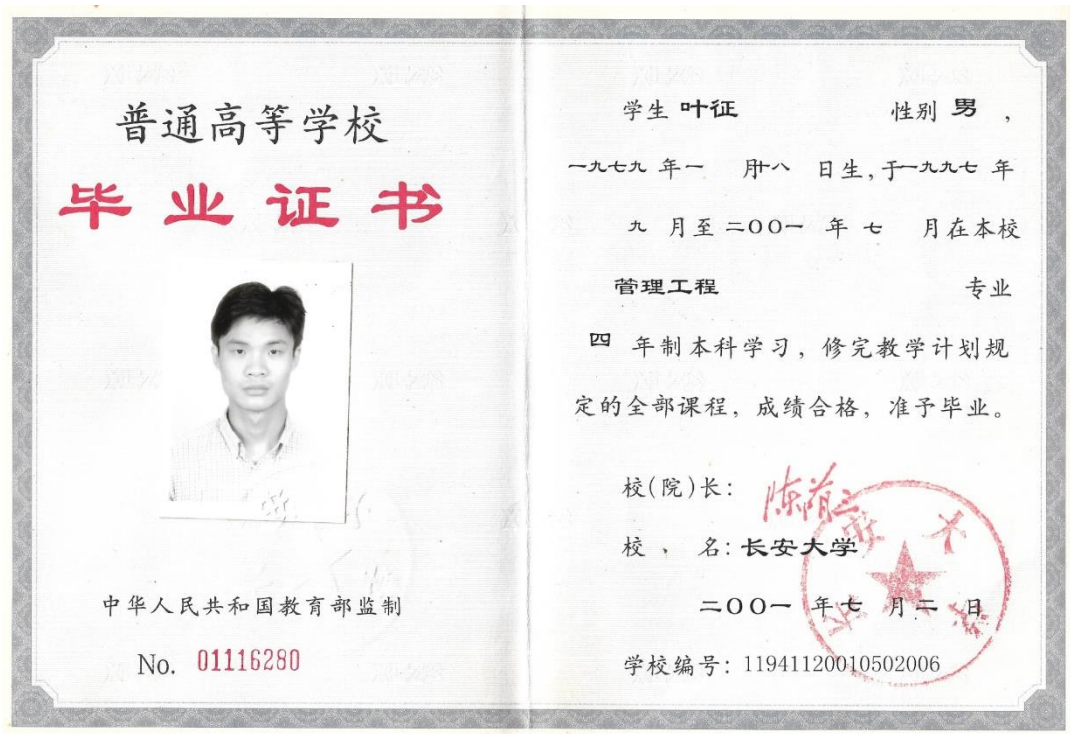 普通高等学校
毕业证书
中华人民共和国教育部监制
No. 01116280
学生 叶征 性别 男 ，
一九七九 年 一 月 十八 日生，于 一九九七 年
九 月至 二〇〇一 年 七 月在本校
管理工程 专业
四 年制本科学习，修完教学计划规
定的全部课程，成绩合格，准予毕业。
校(院)长：
校 、 名: 长安大学
二〇〇一 年 七 月 二 日
学校编号：11941120010502006